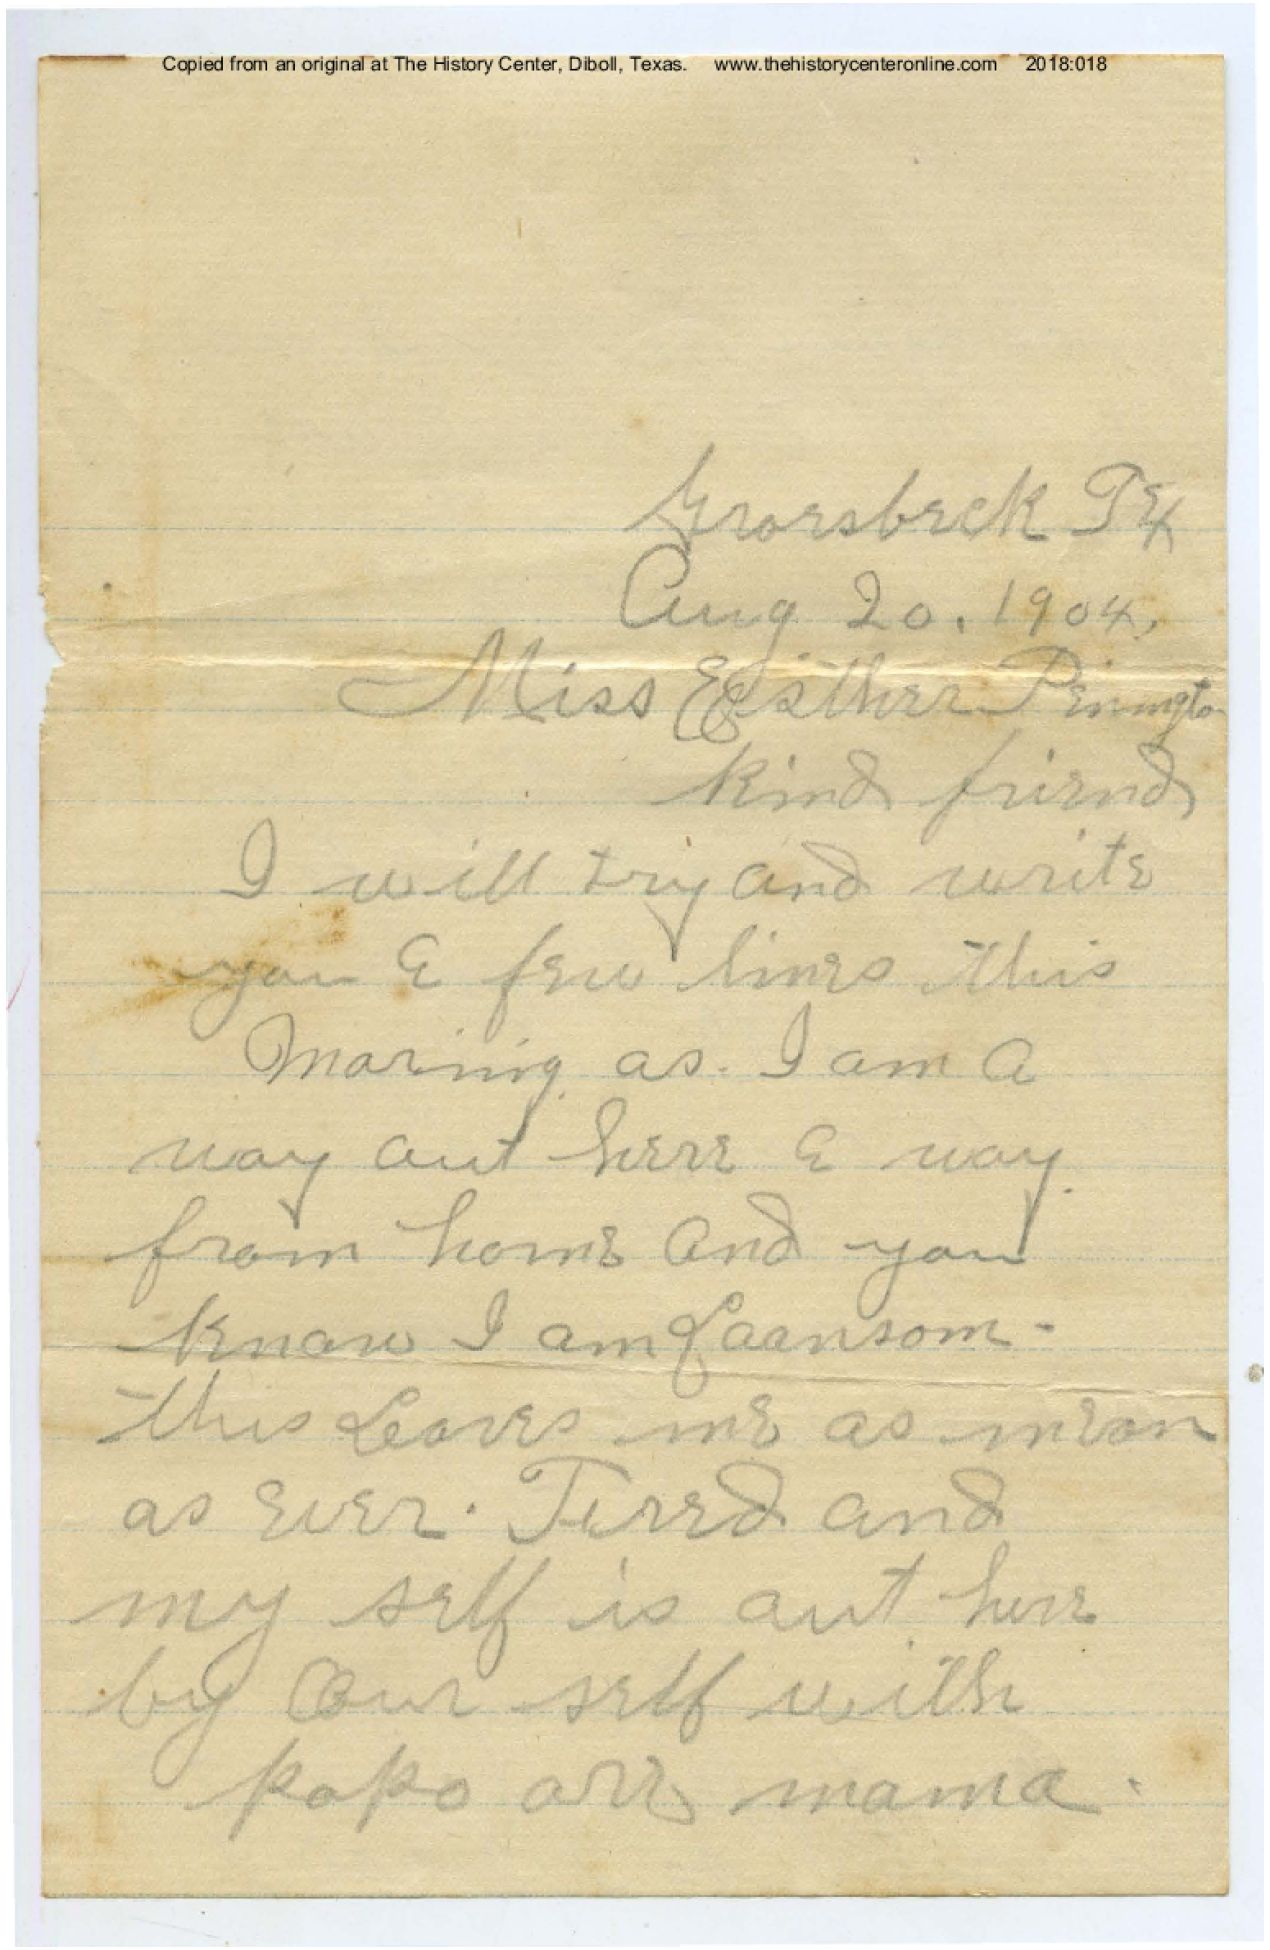 Copied from an original at The History Center, Diboll, Texas. www.thehistorycenteronline.com 2018:018
Groesbeck Tex
Aug 20. 1904,
Miss Esther Penington
kind friend,
I will try and write
you a few lines this
Morning as. I am a
way out here a way
from home and you
know I am Loansom-
this Leaves me as mean
as ever. and
my self is out here
by Our self with
papa or mama.